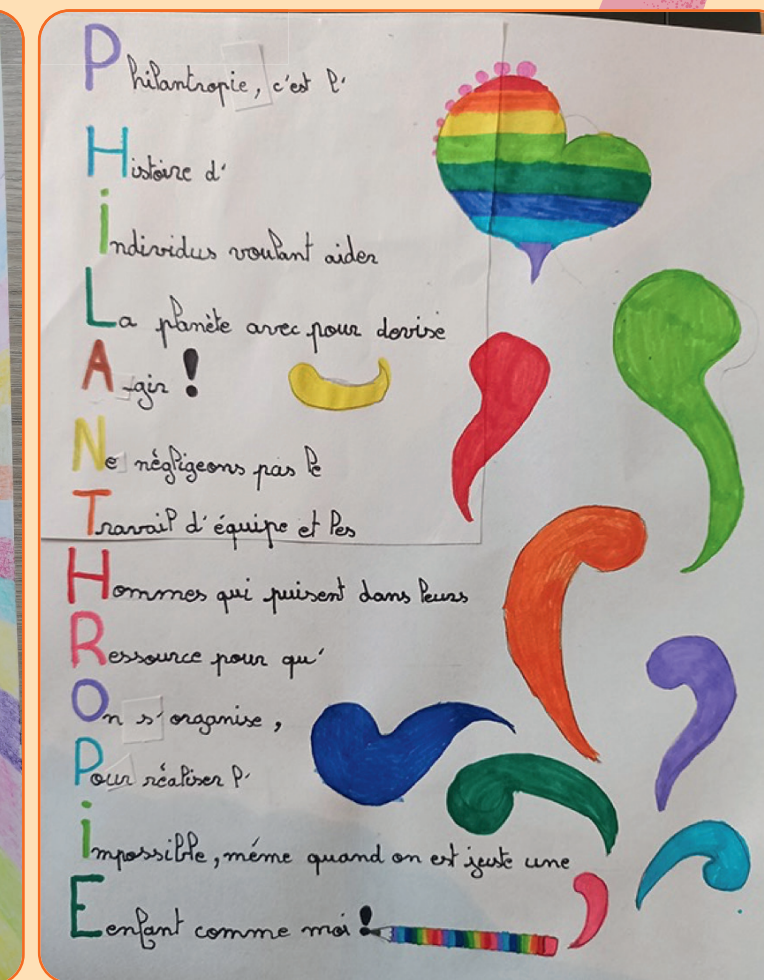 Philantropie, c'est l'
Histoire d'
individus voulant aider
La planète avec pour devise
Agir !
Ne négligeons pas le
Travail d'équipe et les
Hommes qui puisent dans leurs
Ressource pour qu'
On s'organise,
Pour réaliser l'
impossible, même quand on est juste une
Eenfant comme moi !